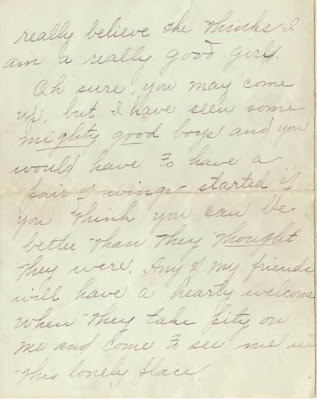 really believe she thinks I
am a really good girl.
Oh sure, you may come
up, but I have seen some
mighty good boys and you
would have to have a
pair of wings started if
you think you can be
better than they thought
they were. Any of my friends
will have a hearty welcome
when they take pity on
me and come to see me in
this lonely place.